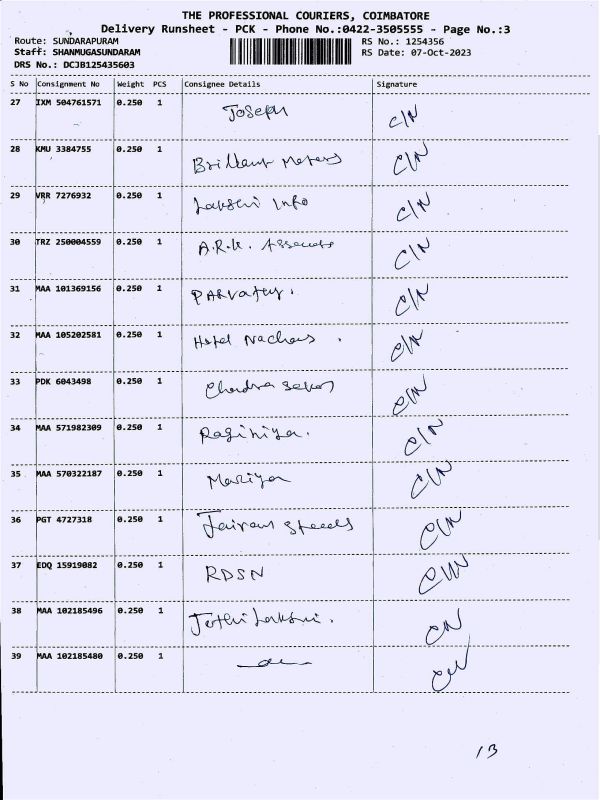 THE PROFESSIONAL COURIERS, COIMBATORE
Delivery Runsheet - PCK - Phone No.:0422-3505555 - Page No.:3
Route: SUNDARAPURAM RS No.: 1254356
Staff: SHANMUGASUNDARAM RS Date: 07-Oct-2023
DRS No.: DCJB125435603
S No Consignment No Weight PCS Consignee Details Signature
27 IXM 504761571 0.250 1 Joseph C/N
28 KMU 3384755 0.250 1 Brilliant Motors C/N
29 VRR 7276932 0.250 1 Lakshi Info C/N
30 TRZ 250004559 0.250 1 A.R.K. C/N
31 MAA 101369156 0.250 1 PARvathy. C/N
32 MAA 105202581 0.250 1 Hotel C/N
33 PDK 6043498 0.250 1 Chandra Sekar C/N
34 MAA 571982309 0.250 1 Raginiya. C/N
35 MAA 570322187 0.250 1 Mariya C/N
36 PGT 4727318 0.250 1 Jairam Steels C/N
37 EDQ 15919082 0.250 1 RDSN C/N
38 MAA 102185496 0.250 1 Jothi Lakshmi. C/N
39 MAA 102185480 0.250 1 C/N
13